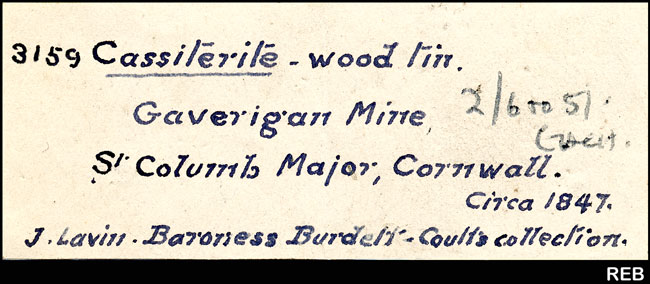 3159 Cassiterite - wood tin.
Gaverigan Mine,
2/6 to 5/
each.
St Columb Major, Cornwall.
Circa 1847.
J. Lavin. Baroness Burdett-Coutts collection.
REB